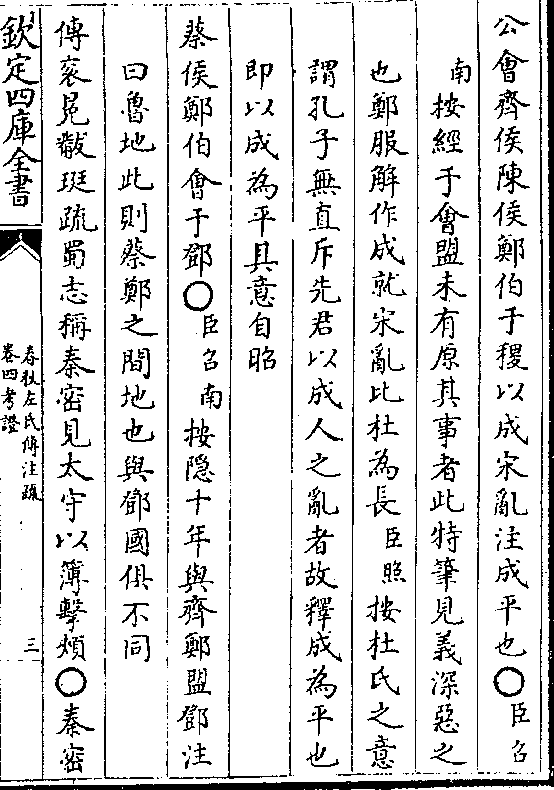 公會齊侯陳侯鄭伯于稷以成宋亂注成平也〇臣召
南按經于會盟未有原其事者此特筆見義深惡之
也鄭服解作成就宋亂比杜為長臣照按杜氏之意
謂孔子無直斥先君以成人之亂者故釋成為平也
即以成為平其意自昭
蔡侯鄭伯會于鄧〇臣召南按隱十年與齊鄭盟鄧注
曰魯地此則蔡鄭之間地也與鄧國俱不同
傳衮冕黻珽疏蜀志稱秦密見太守以簿擊頰〇秦密
欽定四庫全書
春秋左氏傳注疏
卷四考證
三